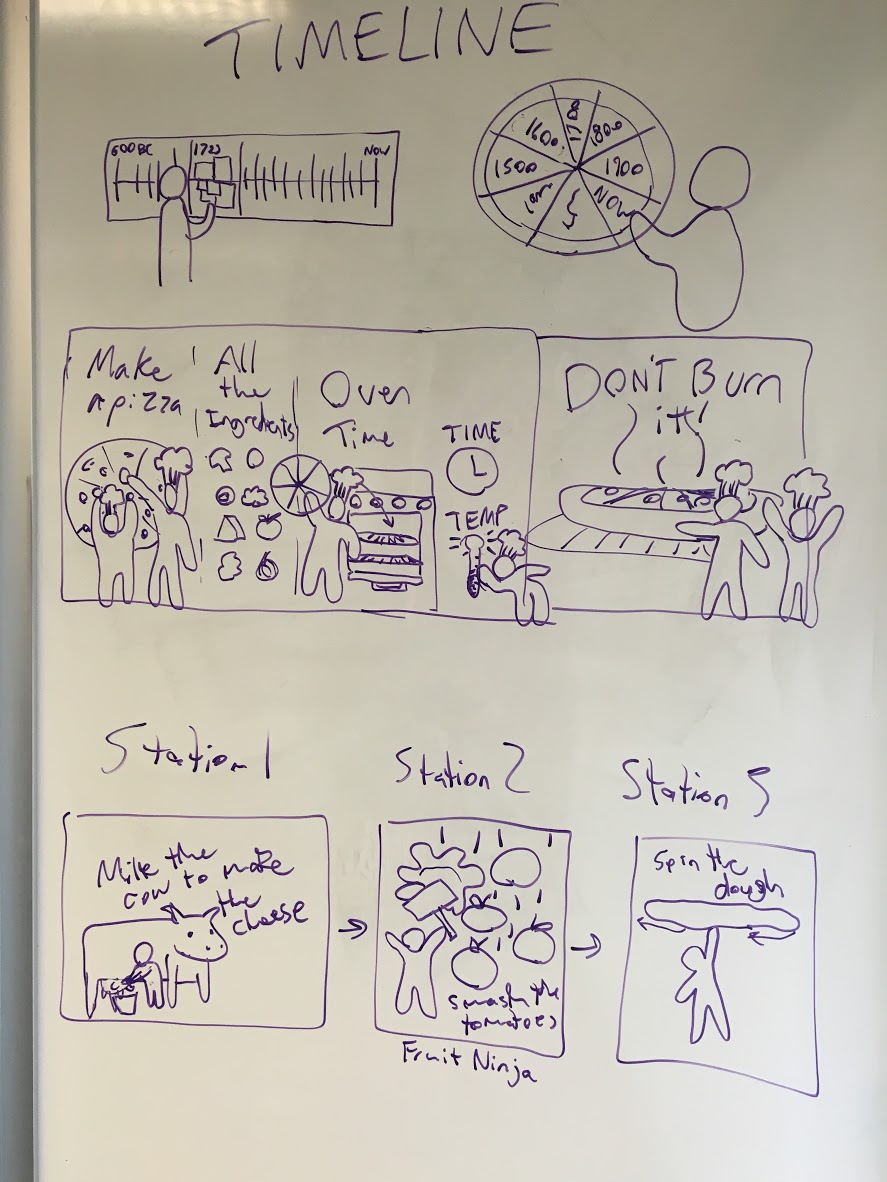 TIMELINE
600BC 1720 NOW
1600 1700 1800
1500 1900
NOW
Make
a pizza
All
the
Ingredients
Oven
Time
TIME
TEMP
DON'T Burn
it!
Station 1
Milk the
cow to make
the
cheese
Station 2
smash the
tomatoes
Fruit Ninja
Station 3
Spin the
dough